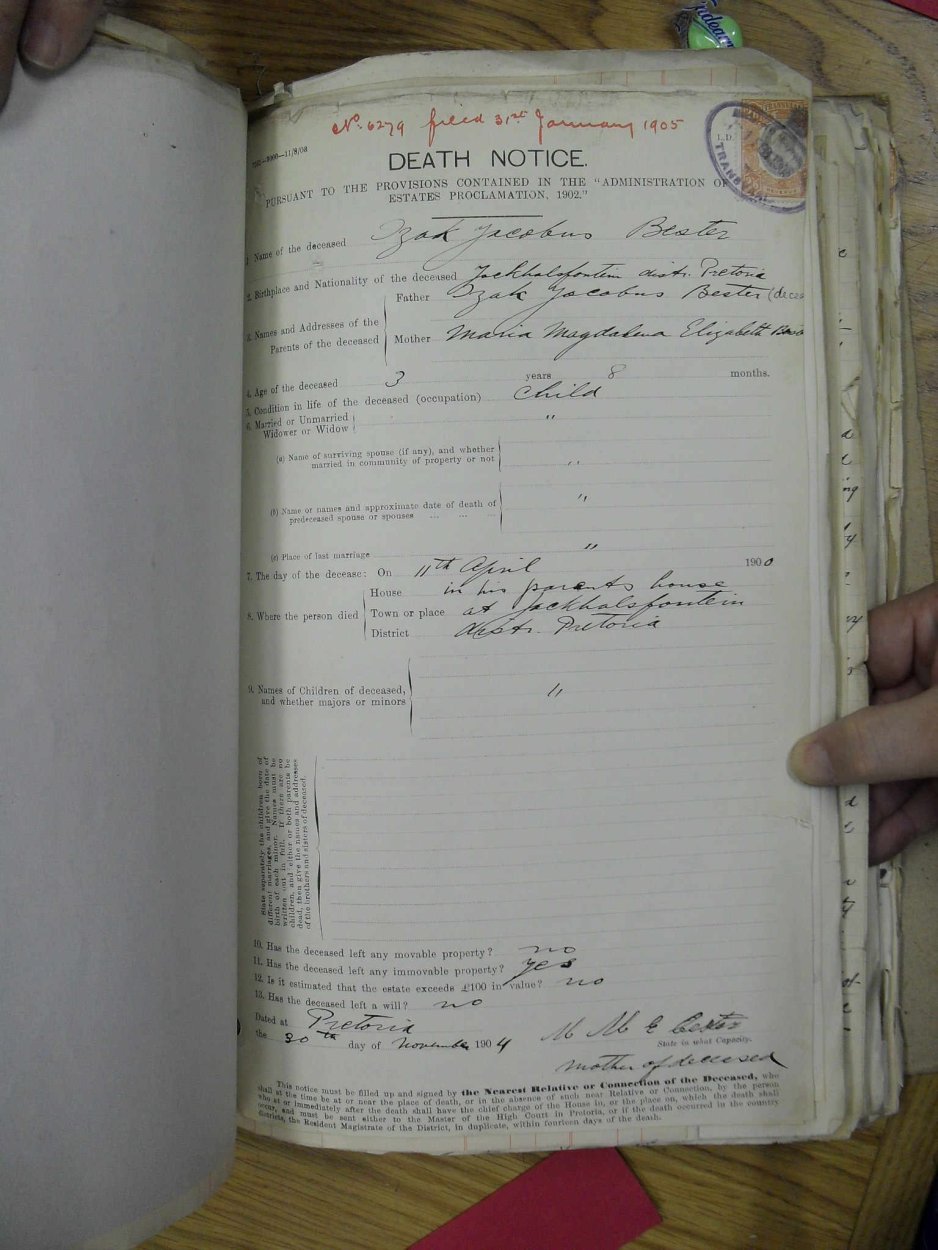 No. 6279 filed 31st January 1905
DEATH NOTICE.
PURSUANT TO THE PROVISIONS CONTAINED IN THE "ADMINISTRATION OF
ESTATES PROCLAMATION, 1902."
1. Name of the deceased Izak Jacobus Bester
2. Birthplace and Nationality of the deceased Jackhalsfontein distr. Pretoria
3. Names and Addresses of the Parents of the deceased
Father Izak Jacobus Bester (decea
Mother Maria Magdalena Elizabeth
4. Age of the deceased 3 years 8 months.
5. Condition in life of the deceased (occupation) Child
6. Married or Unmarried
Widower or Widow "
(a) Name of surviving spouse (if any), and whether
married in community of property or not "
(b) Name or names and approximate date of death of
predeceased spouse or spouses ... ... ... "
(c) Place of last marriage "
7. The day of the decease: On 11th April 1900
8. Where the person died
House in his parents house
Town or place at Jackhalsfontein
District distr. Pretoria
9. Names of Children of deceased,
and whether majors or minors "
State separately the children born of
different marriages, and give the date of
birth of each minor. Names must be
written out in full. If there are no
children, and either or both parents be
dead, then give the names and addresses
of the brothers and sisters of deceased.
10. Has the deceased left any movable property? no
11. Has the deceased left any immovable property? yes
12. Is it estimated that the estate exceeds £100 in value? no
13. Has the deceased left a will? no
Dated at Pretoria
the 30th day of November 1904
M M E Bester
State in what Capacity.
mother of deceased
This notice must be filled up and signed by the Nearest Relative or Connection of the Deceased, who
shall at the time be at or near the place of death, or in the absence of such near Relative or Connection, by the person
who at or immediately after the death shall have the chief charge of the House in, or the place on, which the death shall
occur, and must be sent either to the Master of the High Court in Pretoria, or if the death occurred in the country
districts, the Resident Magistrate of the District, in duplicate, within fourteen days of the death.